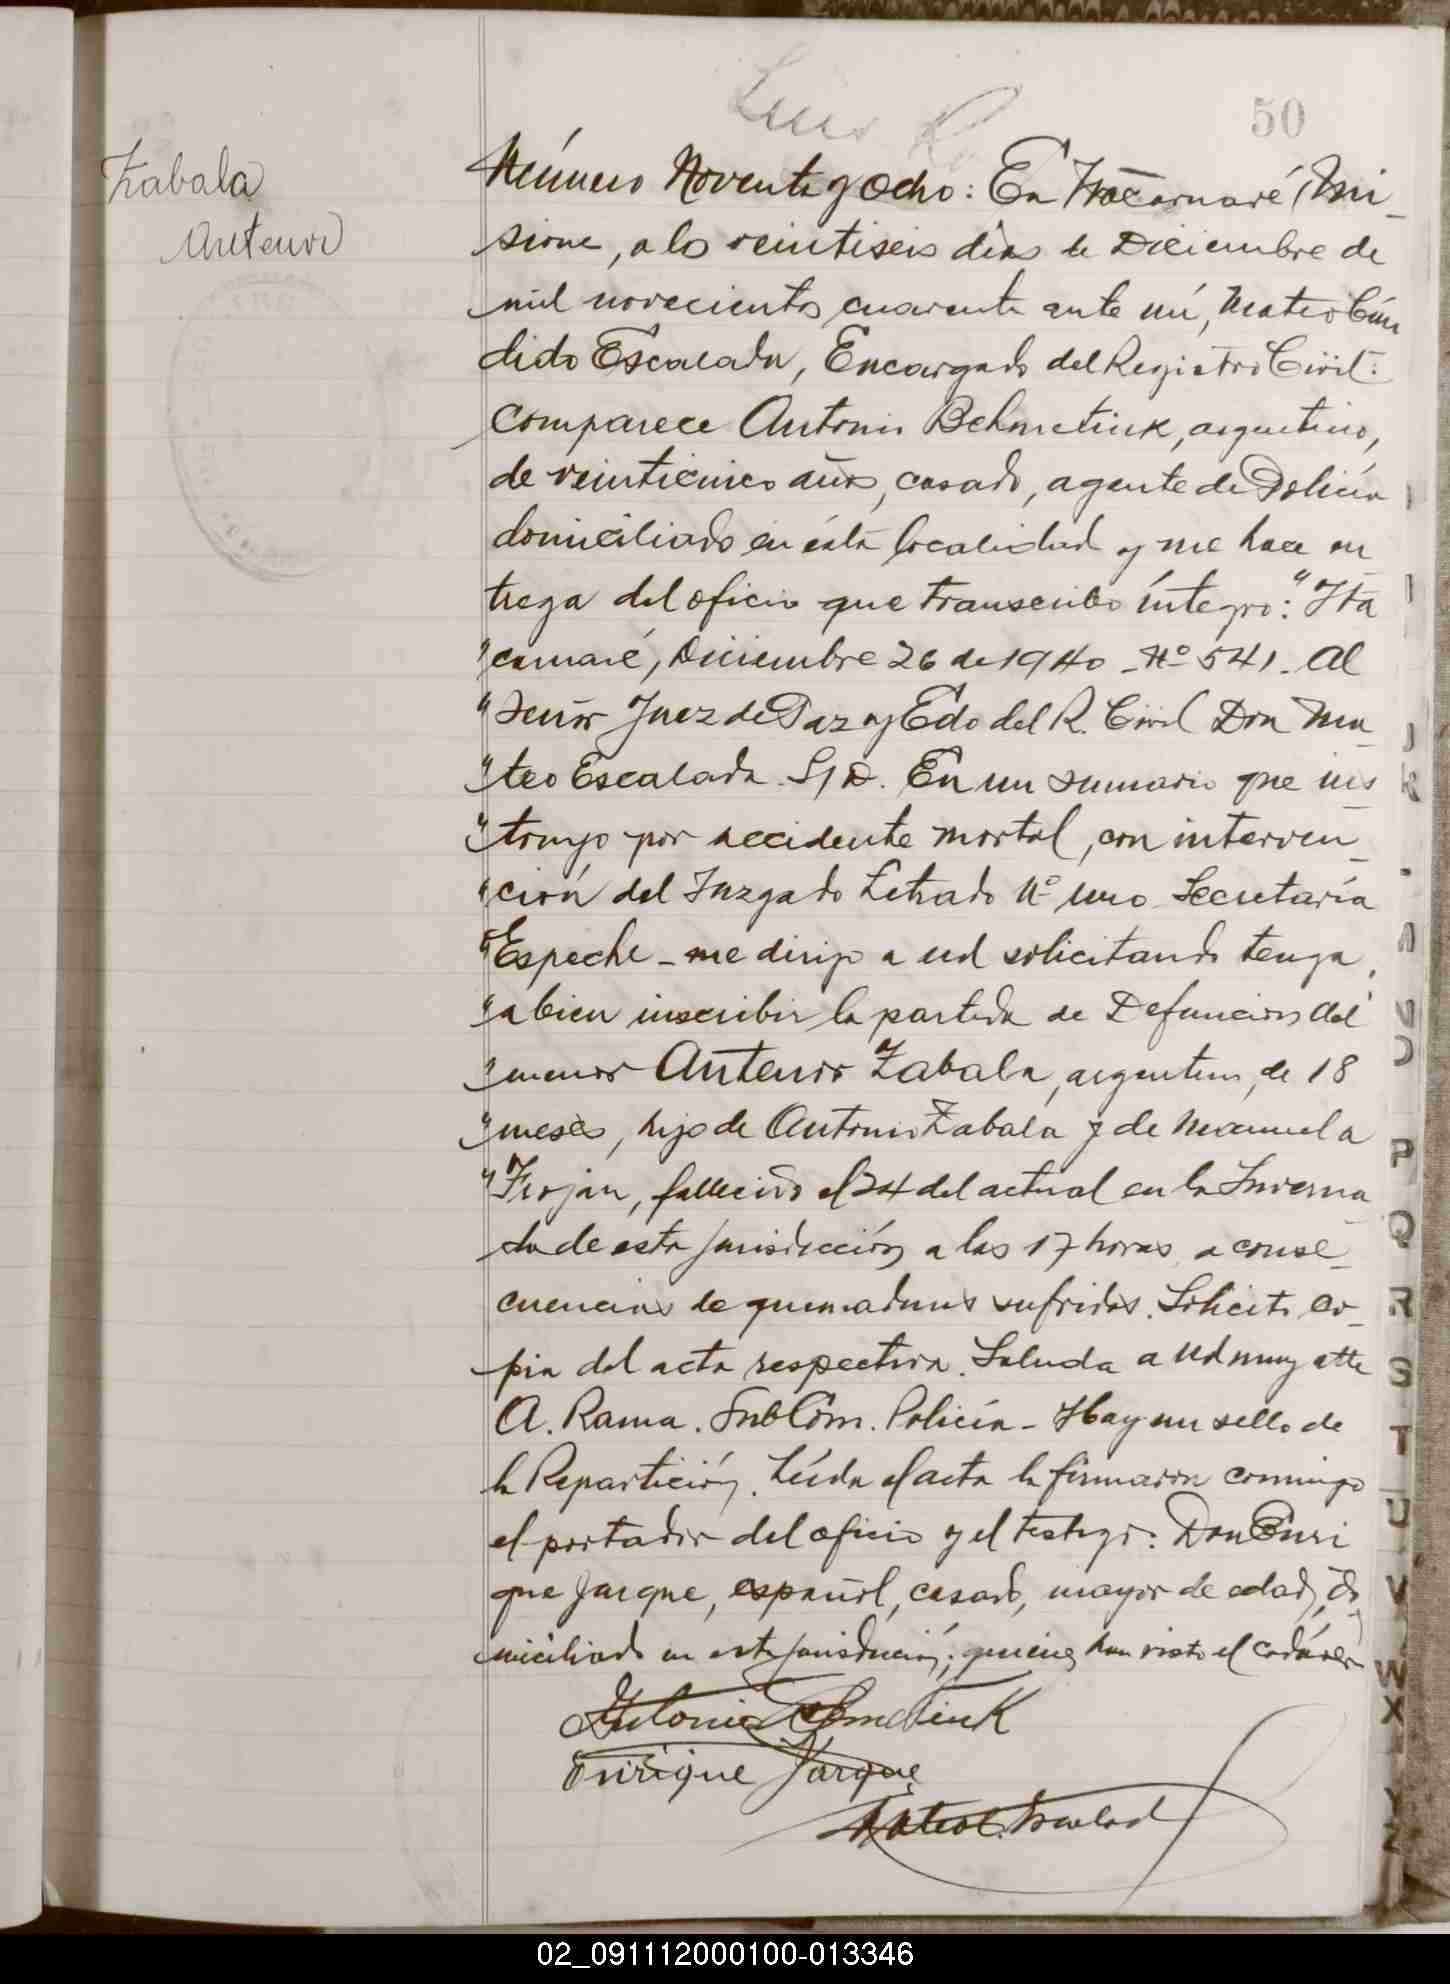 50
Zabala
Antenor
Número Noventa y Ocho: En Itacaruaré, Mi-
sione, a los veintiseis dias de Diciembre de
mil novecientos cuarenta ante mí, Mateo Cán
dido Escalada, Encargado del Registro Civil:
Comparece Antonio argentino,
de veinticinco años, casado, agente de Policía
domiciliado en ésta localidad y me hace en
trega del oficio que transcribo íntegro: "Ita
"caruaré, Diciembre 26 de 1940 - Nº 541 - Al
"Señor Juez de Paz y Edo del R. Civil Don Ma
"teo Escalada. S/D. En un sumario que ins
"truyo por accidente mortal, con interven_
"ción del Juzgado Letrado Nº uno Secretaría
"Espeche - me dirijo a ud solicitando tenga
"a bien inscribir la partida de Defuncion del
"menor Antenor Zabala, argentino, de 18
"meses, hijo de Antonio Zabala y de Manuela
"Trojan, fallecido el 24 del actual en la Inverna
da de esta jurisdicción a las 17 horas, a conse_
cuencias de quemaduras sufridas. Solicito co_
pia del acta respectiva. Saluda a Ud muy atte
A. Rama. SubCom. Policía - Hay un sello de
la Repartición. Leída el acta la firmaron conmigo
el portador del oficio y el testigo: Don Enri
que Jarque, español, casado, mayor de edad, do
miciliado en esta jurisdicción; quienes han visto el cadáver
Antonio
Enrique Jarque
Mateo C. Escalad
P
Q
R
S
T
U
V
W
X
Y
Z
02_091112000100-013346